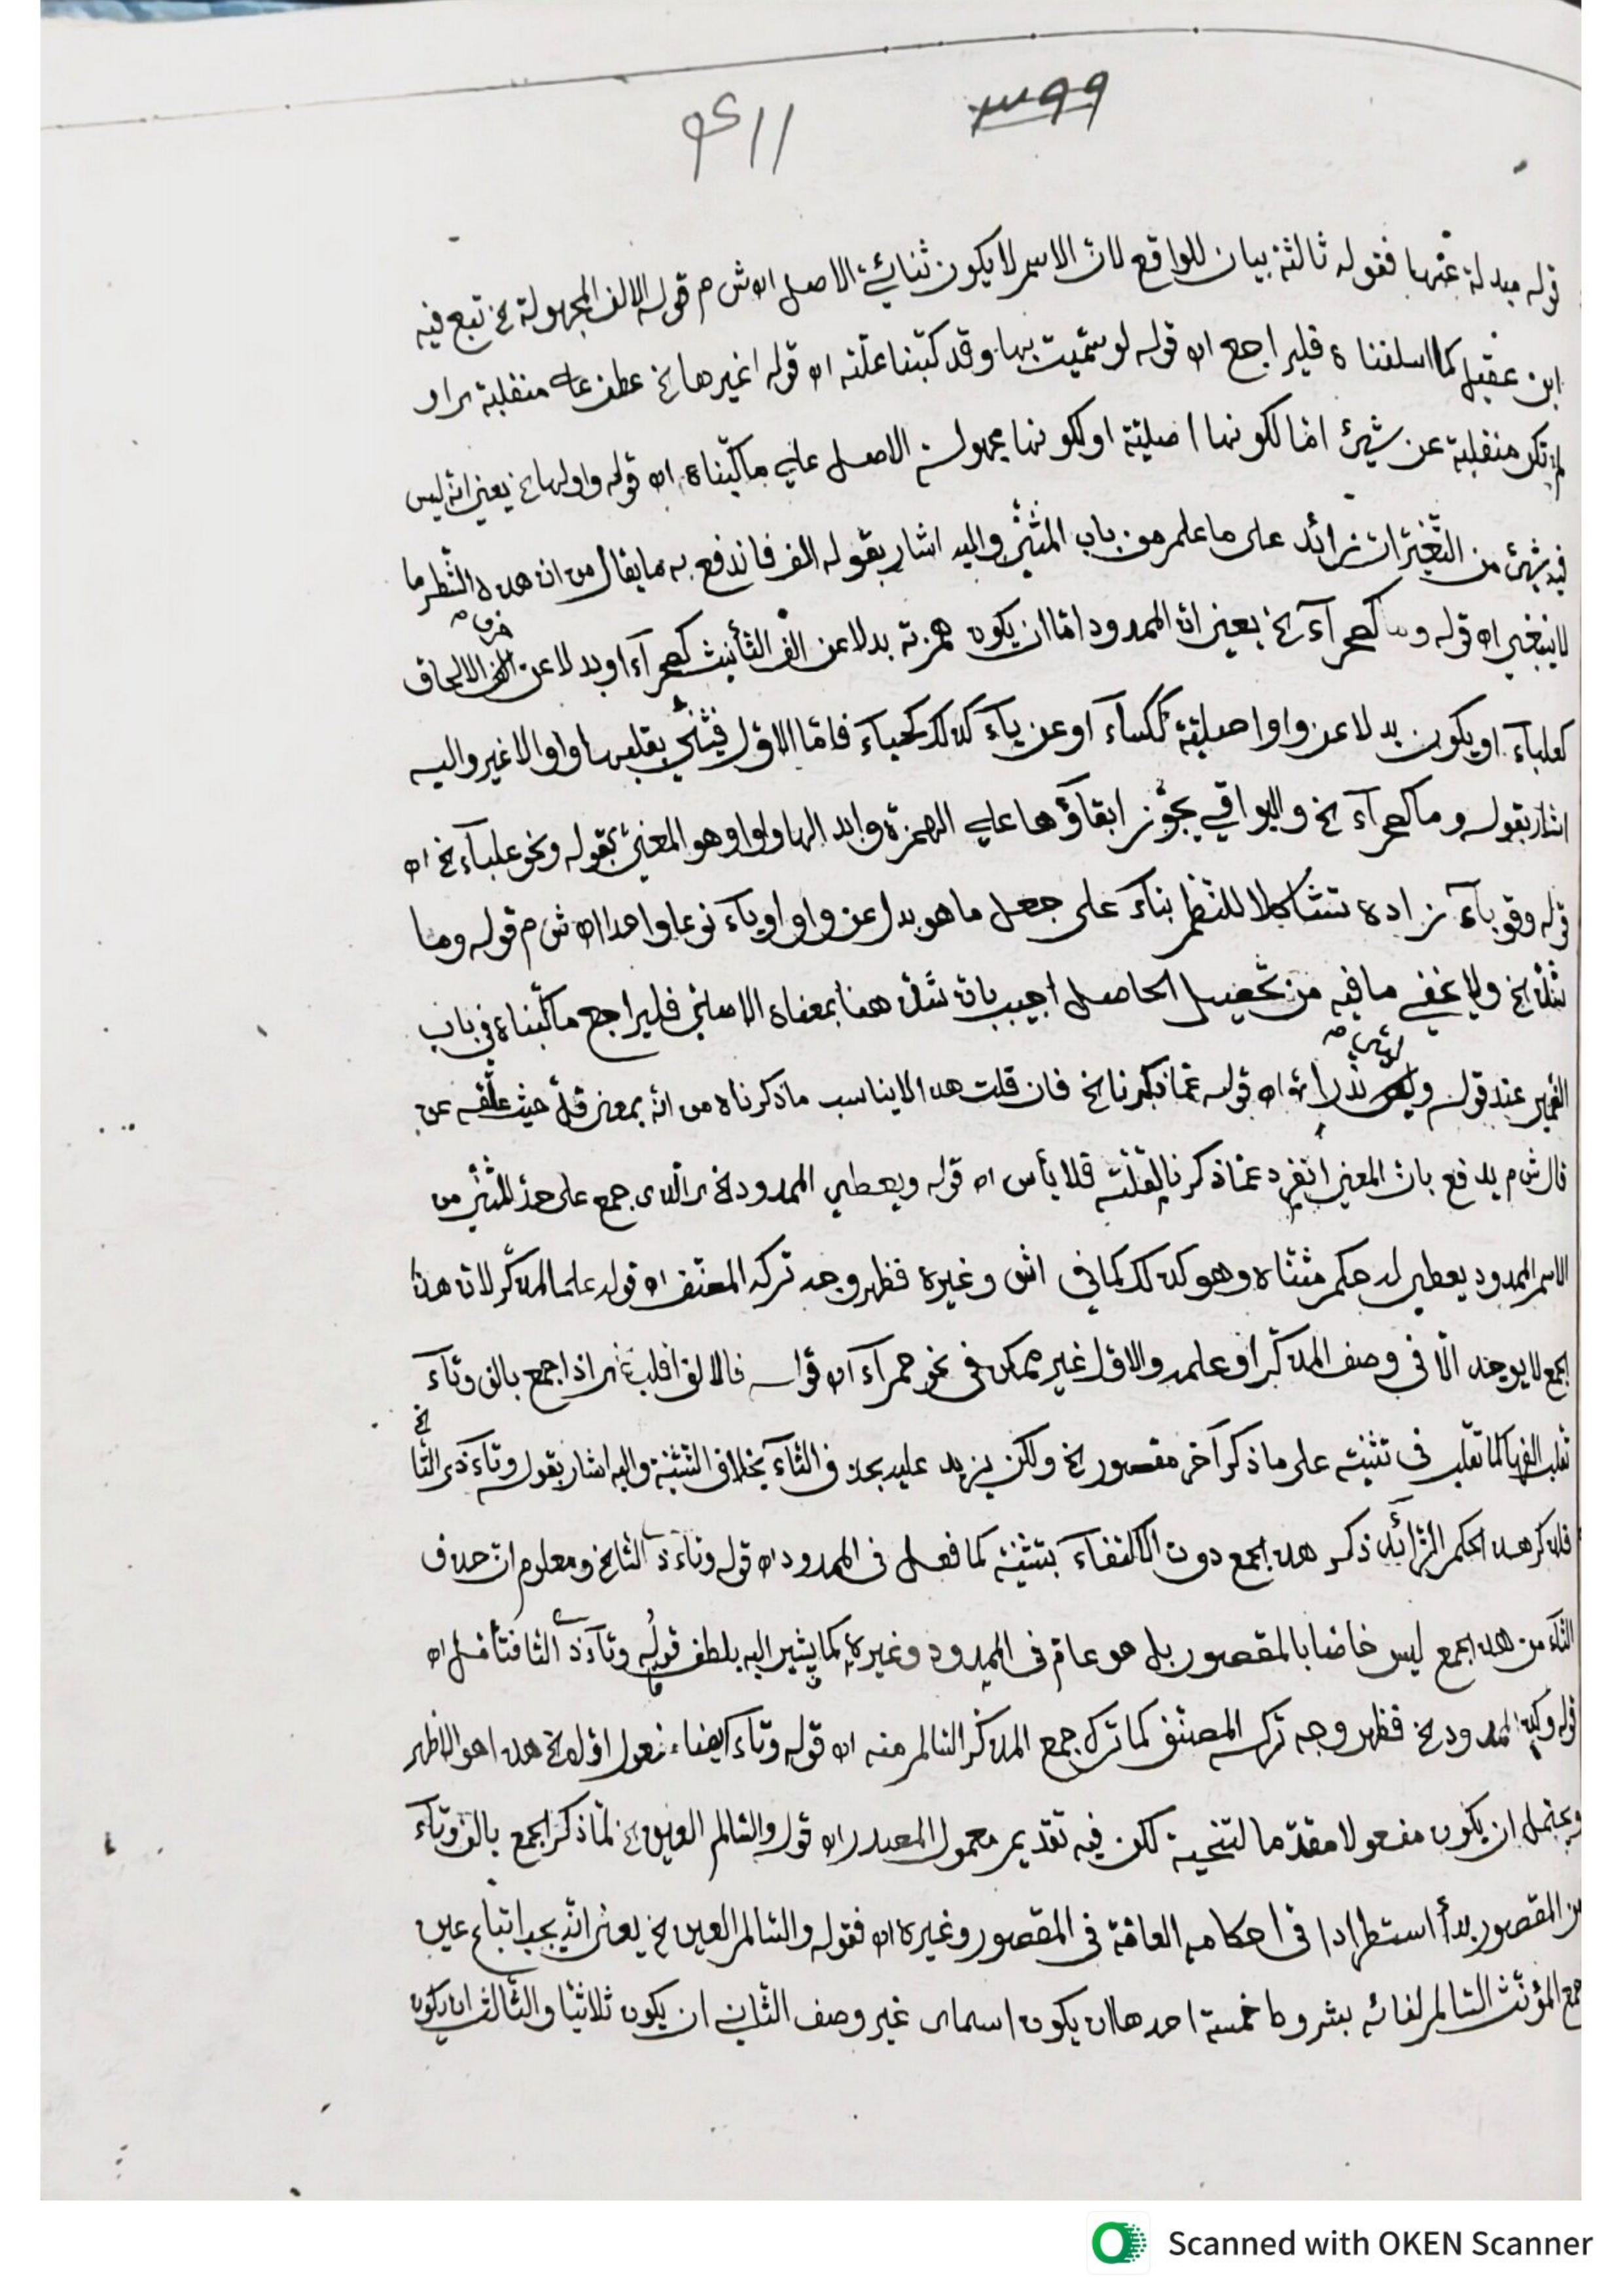 ٣٩٩
قوله مبدلة عنها فقوله ثالثة بيان للواقع لان الاسم لا يكون ثنائي الاصل اه ش م قوله الالف المجهولة الخ تبع فيه
ابن عقيل كما اسلفناه فليراجع اه قوله لو سميت بها وقد كتبنا علّته اه قوله اغيرها الخ عطف على منقلبة
لم تكن منقلبة عن شيئ امّا لكونها اصليّة او لكونها مجهولة الاصل علي ما كتبناه اه قوله واولها الخ يعني انه ليس
فيه شيئ من التغيّرات زائد على ما علم من باب المثنّى واليه اشار بقوله الف فاندفع به ما يقال من ان هذه الشطر ما
لا ينبغي اه قوله وما كصحرآء الخ يعني انّ الممدود امّا ان يكون همزته بدلا عن الف التأنيث كصحرآء او بدلا عن حرف الالحاق
كعلبآء او يكون بدلا عن واو اصليّة ككسآء او عن يآء كذلك كحيآء فامّا الاوّل فيثنّي بقلبها واوا لا غير واليه
اشار بقوله وما كصحرآء الخ والبواقي يجوّز ابقاؤها علي الهمزة وابدالها واوا وهو المعنيّ بقوله ونحو علبآء الخ اه
قوله وقوبآء زاده تتشاكلا للنظم بنآء على جعل ما هو بدل عن واو او يآء نوعا واحدا اه ش م قوله وما
شذّ الخ ولا يخفي ما فيه من تحصيل الحاصل اجيب بان شذّ هنا بمعناه الاصليّ فليراجع ما كتبناه في باب
الضمير عند قوله اه قوله عمّا ذكرنا الخ فان قلت هذا لا يناسب ما ذكرناه من انّه بمعنى قلّ حيث علّقه عن
قال ش م يدفع بان المعني انفرد عمّا ذكرنا لقلّته فلا بأس اه قوله ويعطي الممدود الخ اى الّذى جمع على حدّ المثنّى من
الاسم الممدود يعطي له حكم مثنّاه وهو كذلك كما في اش وغيره فظهر وجه تركه المصنّف اه قوله علما لمذكّر لان هذا
الجمع لا يوجد الّا في وصف المذكّر او علمه والاوّل غير ممكن في نحو حمرآء اه قوله فالالف اقلب الخ اى اذا جمع بالف وتآء
تقلب الفها كما تقلب في تثنيته على ما ذكر آخر مقصور الخ ولكن يزيد عليه بحذف التآء بخلاف التثنية واليه اشار بقوله وتآء ذى التا الخ
فلذكر هذا الحكم الزائد ذكر هذا الجمع دون الاكتفآء بتثنيته كما فعل في الممدود اه قوله وتآء ذى التا الخ ومعلوم ان حذف
التآء من هذا الجمع ليس خاصّا بالمقصور بل هو عامّ في الممدود وغيره كما يشير اليه بلطف قوله وتآء ذى التا فتأمّل اه
قوله وكذا الممدود الخ فظهر وجه تركه المصنّف كما ترك جمع المذكّر السّالم منه اه قوله وتآء ايضا مفعول اوّل الخ هذا هو الظاهر
ويحتمل ان يكون مفعولا مقدّما لتنحية لكن فيه تقديم معمول المصدر اه قوله والسّالم العين الخ لمّا ذكر الجمع بالف وتآء
من المقصور بدأ استطرادا في احكامه العامّة في المقصور وغيره اه فقوله والسّالم العين الخ يعني انّه يجب اتباع عين
جمع المؤنّث السّالم لفائه بشروط خمسة احدها ان يكون اسما اى غير وصف الثّاني ان يكون ثلاثيّا والثّالث ان يكون
Scanned with OKEN Scanner